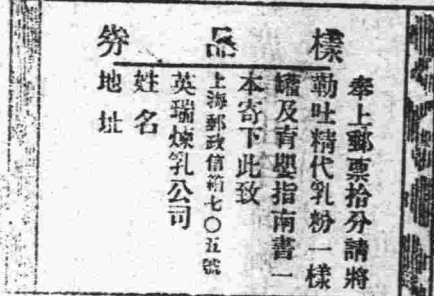 樣品券
奉上郵票拾分請將
勒吐精代乳粉一樣
罐及育嬰指南書一
本寄下此致
上海郵政信箱七〇五號
英瑞煉乳公司
姓名
地址